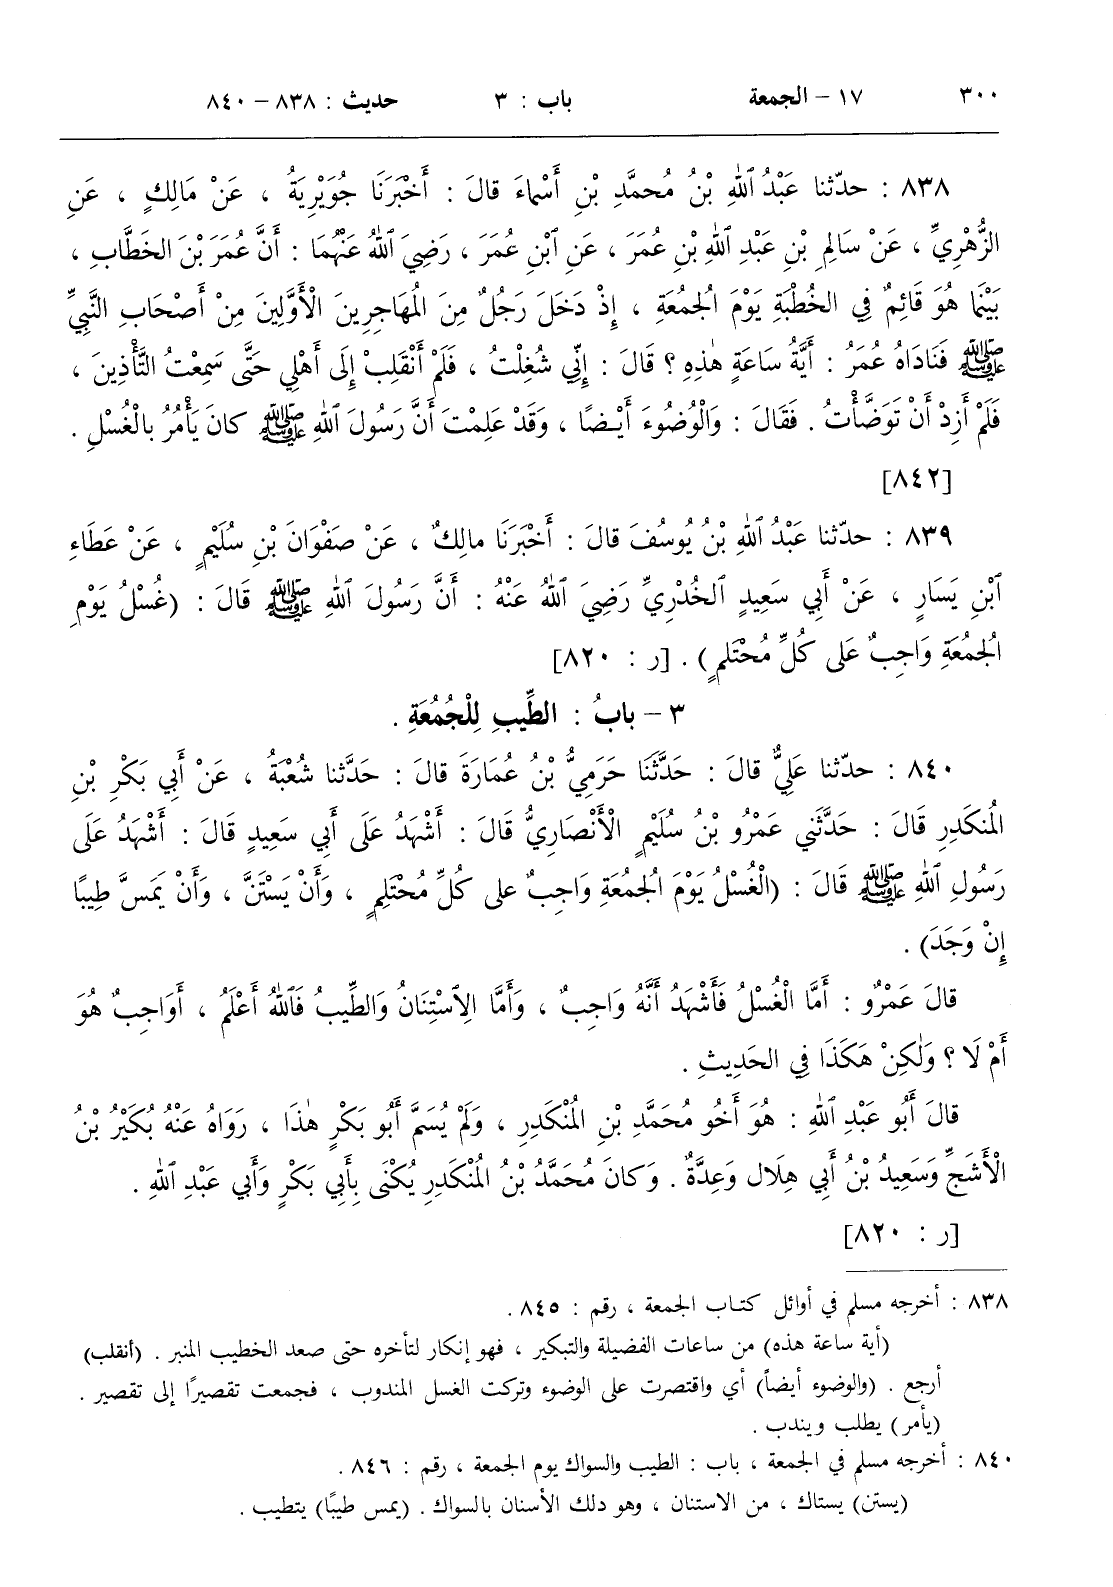 ٣٠٠ ١٧ – الجمعة باب : ٣ حديث : ٨٣٨ – ٨٤٠
٨٣٨ : حدّثنا عَبْدُ ٱللهِ بْنُ مُحمَّدِ بْنِ أَسْماءَ قالَ : أَخْبَرَنَا جُوَيْرِيَةُ ، عَنْ مَالِكٍ ، عَنِ
الزُّهْرِيِّ ، عَنْ سَالِمِ بْنِ عَبْدِ ٱللهِ بْنِ عُمَرَ ، عَنِ ٱبْنِ عُمَرَ ، رَضِيَ ٱللهُ عَنْهُمَا : أَنَّ عُمَرَ بْنَ الخَطَّابِ ،
بَيْنَما هُوَ قَائِمٌ فِي الخُطْبَةِ يَوْمَ الجُمعَةِ ، إِذْ دَخَلَ رَجُلٌ مِنَ المُهَاجِرِينَ الْأَوَّلِينَ مِنْ أَصْحَابِ النَّبِيِّ
ﷺ فَنَادَاهُ عُمَرُ : أَيَّةُ سَاعَةٍ هٰذِهِ ؟ قَالَ : إِنِّي شُغِلْتُ ، فَلَمْ أَنْقَلِبْ إِلَى أَهْلِي حَتَّى سَمِعْتُ التَّأْذِينَ ،
فَلَمْ أَزِدْ أَنْ تَوَضَّأْتُ . فَقَالَ : وَالْوُضُوءَ أَيْـضًا ، وَقَدْ عَلِمْتَ أَنَّ رَسُولَ ٱللهِ ﷺ كانَ يَأْمُرُ بالْغُسْلِ .
[٨٤٢]
٨٣٩ : حدّثنا عَبْدُ ٱللهِ بْنُ يُوسُفَ قالَ : أَخْبَرَنَا مالِكٌ ، عَنْ صَفْوَانَ بْنِ سُلَيْمٍ ، عَنْ عَطَاءِ
ٱبْنِ يَسَارٍ ، عَنْ أَبِي سَعِيدٍ ٱلخُدْرِيِّ رَضِيَ ٱللهُ عَنْهُ : أَنَّ رَسُولَ ٱللهِ ﷺ قَالَ : (غُسْلُ يَوْمِ
الجُمعَةِ وَاجِبٌ عَلى كُلِّ مُحْتَلمٍ) . [ر : ٨٢٠]
٣ – بابُ : الطِّيبِ لِلْجُمُعَةِ .
٨٤٠ : حدّثنا عَلِيٌّ قالَ : حَدَّثَنَا حَرَمِيُّ بْنُ عُمَارَةَ قالَ : حَدَّثنا شُعْبَةُ ، عَنْ أَبِي بَكْرِ بْنِ
المُنكَدِرِ قَالَ : حَدَّثَنِي عَمْرُو بْنُ سُلَيْمٍ الْأَنْصَارِيُّ قَالَ : أَشْهَدُ عَلَى أَبِي سَعِيدٍ قَالَ : أَشْهَدُ عَلَى
رَسُولِ ٱللهِ ﷺ قَالَ : (الْغُسْلُ يَوْمَ الجُمُعَةِ وَاجِبٌ على كُلِّ مُحْتَلِمٍ ، وَأَنْ يَسْتَنَّ ، وَأَنْ يَمَسَّ طِيبًا
إِنْ وَجَدَ) .
قالَ عَمْرٌو : أَمَّا الْغُسْلُ فَأَشْهَدُ أَنَّهُ وَاجِبٌ ، وَأَمَّا الِاسْتِنَانُ وَالطِّيبُ فَٱللهُ أَعْلَمُ ، أَوَاجِبٌ هُوَ
أَمْ لَا ؟ وَلٰكِنْ هٰكَذَا فِي الحَدِيثِ .
قالَ أَبُو عَبْدِ ٱللهِ : هُوَ أَخُو مُحَمَّدِ بْنِ المُنْكَدِرِ ، وَلَمْ يُسَمَّ أَبُو بَكْرٍ هٰذَا ، رَوَاهُ عَنْهُ بُكَيْرُ بْنُ
الْأَشَجِّ وَسَعِيدُ بْنُ أَبِي هِلَال وَعِدَّةٌ . وَكانَ مُحَمَّدُ بْنُ المُنْكَدِرِ يُكْنَى بِأَبِي بَكْرٍ وَأَبِي عَبْدِ ٱللهِ .
[ر : ٨٢٠]
٨٣٨ : أخرجه مسلم في أوائل كتـاب الجمعة ، رقم : ٨٤٥ .
(أية ساعة هذه) من ساعات الفضيلة والتبكير ، فهو إنكار لتأخره حتى صعد الخطيب المنبر . (أنقلب)
أرجع . (والوضوء أيضاً) أي واقتصرت على الوضوء وتركت الغسل المندوب ، فجمعت تقصيرًا إلى تقصير .
(يأمر) يطلب ويندب .
٨٤٠ : أخرجه مسلم في الجمعة ، باب : الطيب والسواك يوم الجمعة ، رقم : ٨٤٦ .
(يستن) يستاك ، من الاستنان ، وهو دلك الأسنان بالسواك . (يمس طيبًا) يتطيب .